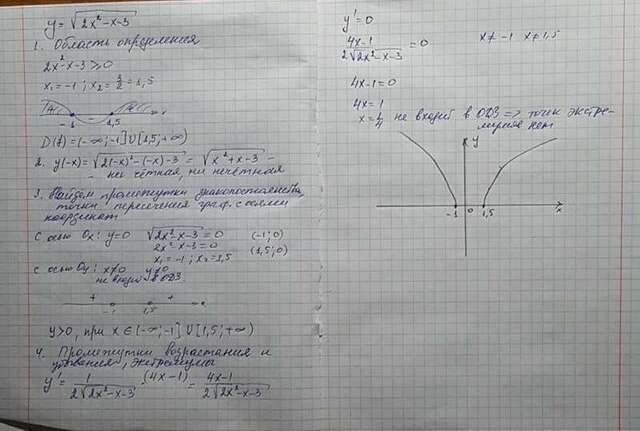 y = √(2x²-x-3)
1. Область определения
2x²-x-3 ≥ 0
x₁ = -1; x₂ = 3/2 = 1,5
-1 1,5 x
D(f) = (-∞; -1] ∪ [1,5; +∞)
2. y(-x) = √(2(-x)²-(-x)-3) = √(x²+x-3) -
- ни чётная, ни нечётная
3. Найдём промежутки знакопостоянства,
точки пересечения граф. с осями
координат
С осью Ox: y=0 √(2x²-x-3) = 0 (-1; 0)
2x²-x-3 = 0 (1,5; 0)
x₁ = -1; x₂ = 1,5
С осью Oy: x≠0 y≠0
не входит в ОДЗ.
+ - +
-1 1,5 x
y>0, при x ∈ (-∞; -1] ∪ [1,5; +∞)
4. Промежутки возрастания и
убывания, экстремумы
y' = 1/(2√(2x²-x-3)) · (4x-1) = (4x-1)/(2√(2x²-x-3))
y' = 0
(4x-1)/(2√(2x²-x-3)) = 0 x ≠ -1 x ≠ 1,5
4x-1 = 0
4x = 1
x = 1/4 не входит в ОДЗ => точек экстре-
мумов нет
y
-1 0 1,5 x